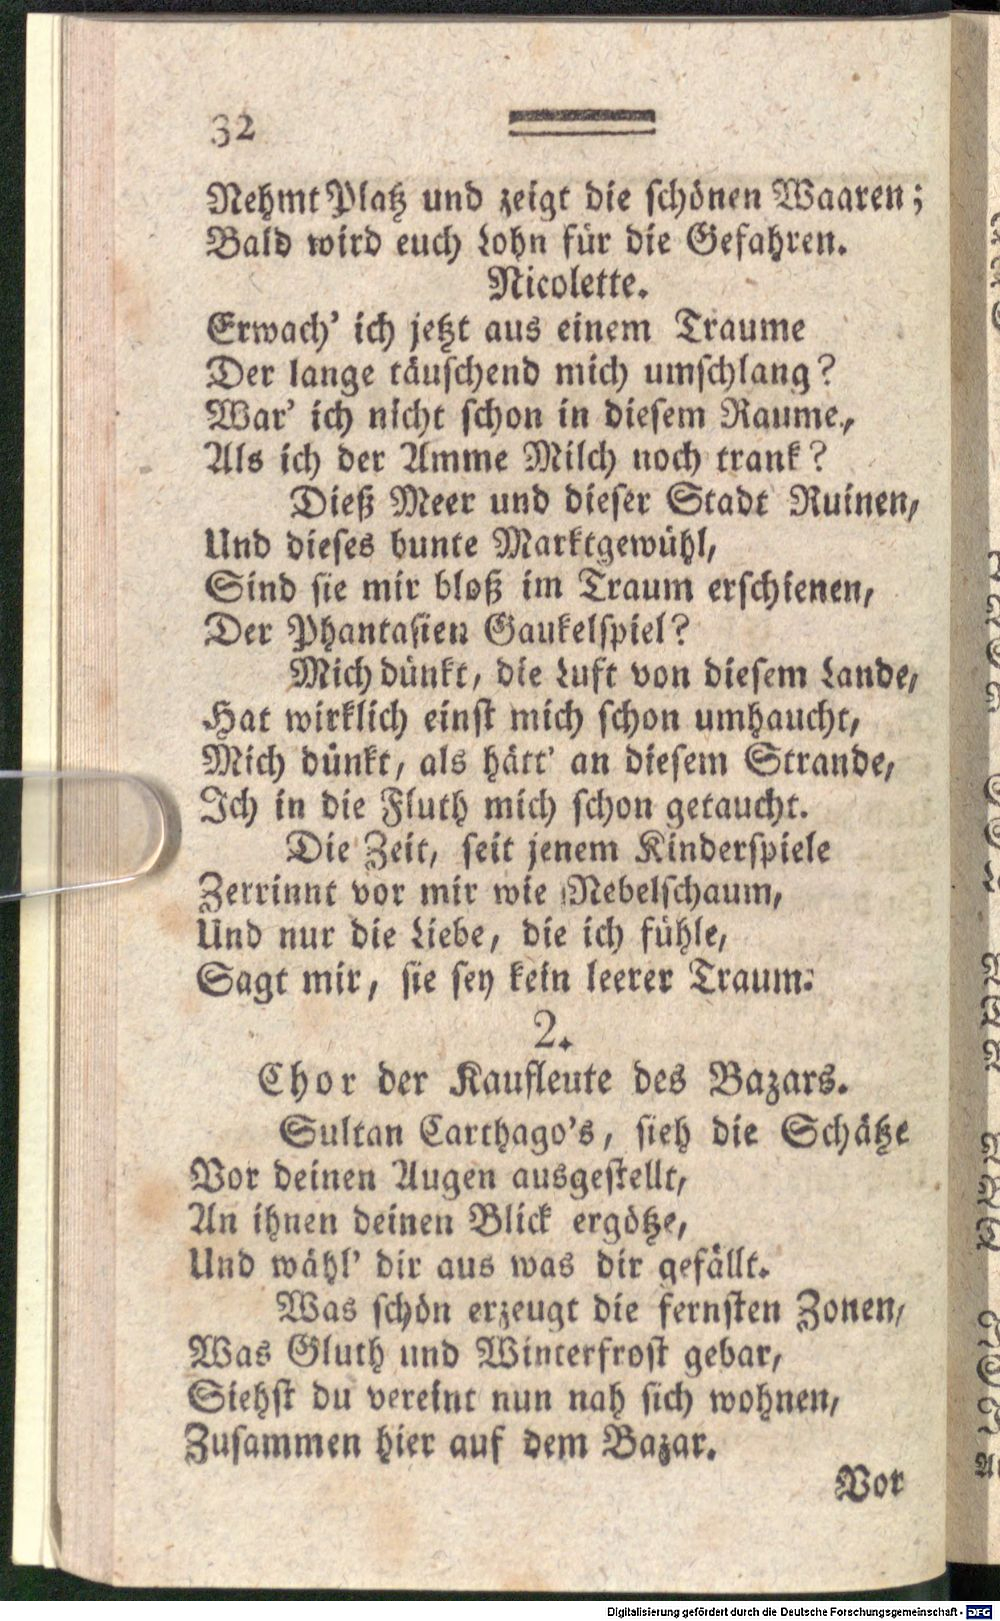 32
Nehmt Platz und zeigt die schönen Waaren;
Bald wird euch Lohn für die Gefahren.
Nicolette.
Erwach' ich jetzt aus einem Traume
Der lange täuschend mich umschlang?
War' ich nicht schon in diesem Raume,
Als ich der Amme Milch noch trank?
Dieß Meer und dieser Stadt Ruinen,
Und dieses bunte Marktgewühl,
Sind sie mir bloß im Traum erschienen,
Der Phantasien Gaukelspiel?
Mich dünkt, die Luft von diesem Lande,
Hat wirklich einst mich schon umhaucht,
Mich dünkt, als hätt' an diesem Strande,
Ich in die Fluth mich schon getaucht.
Die Zeit, seit jenem Kinderspiele
Zerrinnt vor mir wie Nebelschaum,
Und nur die Liebe, die ich fühle,
Sagt mir, sie sey kein leerer Traum.
2.
Chor der Kaufleute des Bazars.
Sultan Carthago's, sieh die Schätze
Vor deinen Augen ausgestellt,
An ihnen deinen Blick ergötze,
Und wähl' dir aus was dir gefällt.
Was schön erzeugt die fernsten Zonen,
Was Gluth und Winterfrost gebar,
Siehst du vereint nun nah sich wohnen,
Zusammen hier auf dem Bazar.
Vor
Digitalisierung gefördert durch die Deutsche Forschungsgemeinschaft - DFG